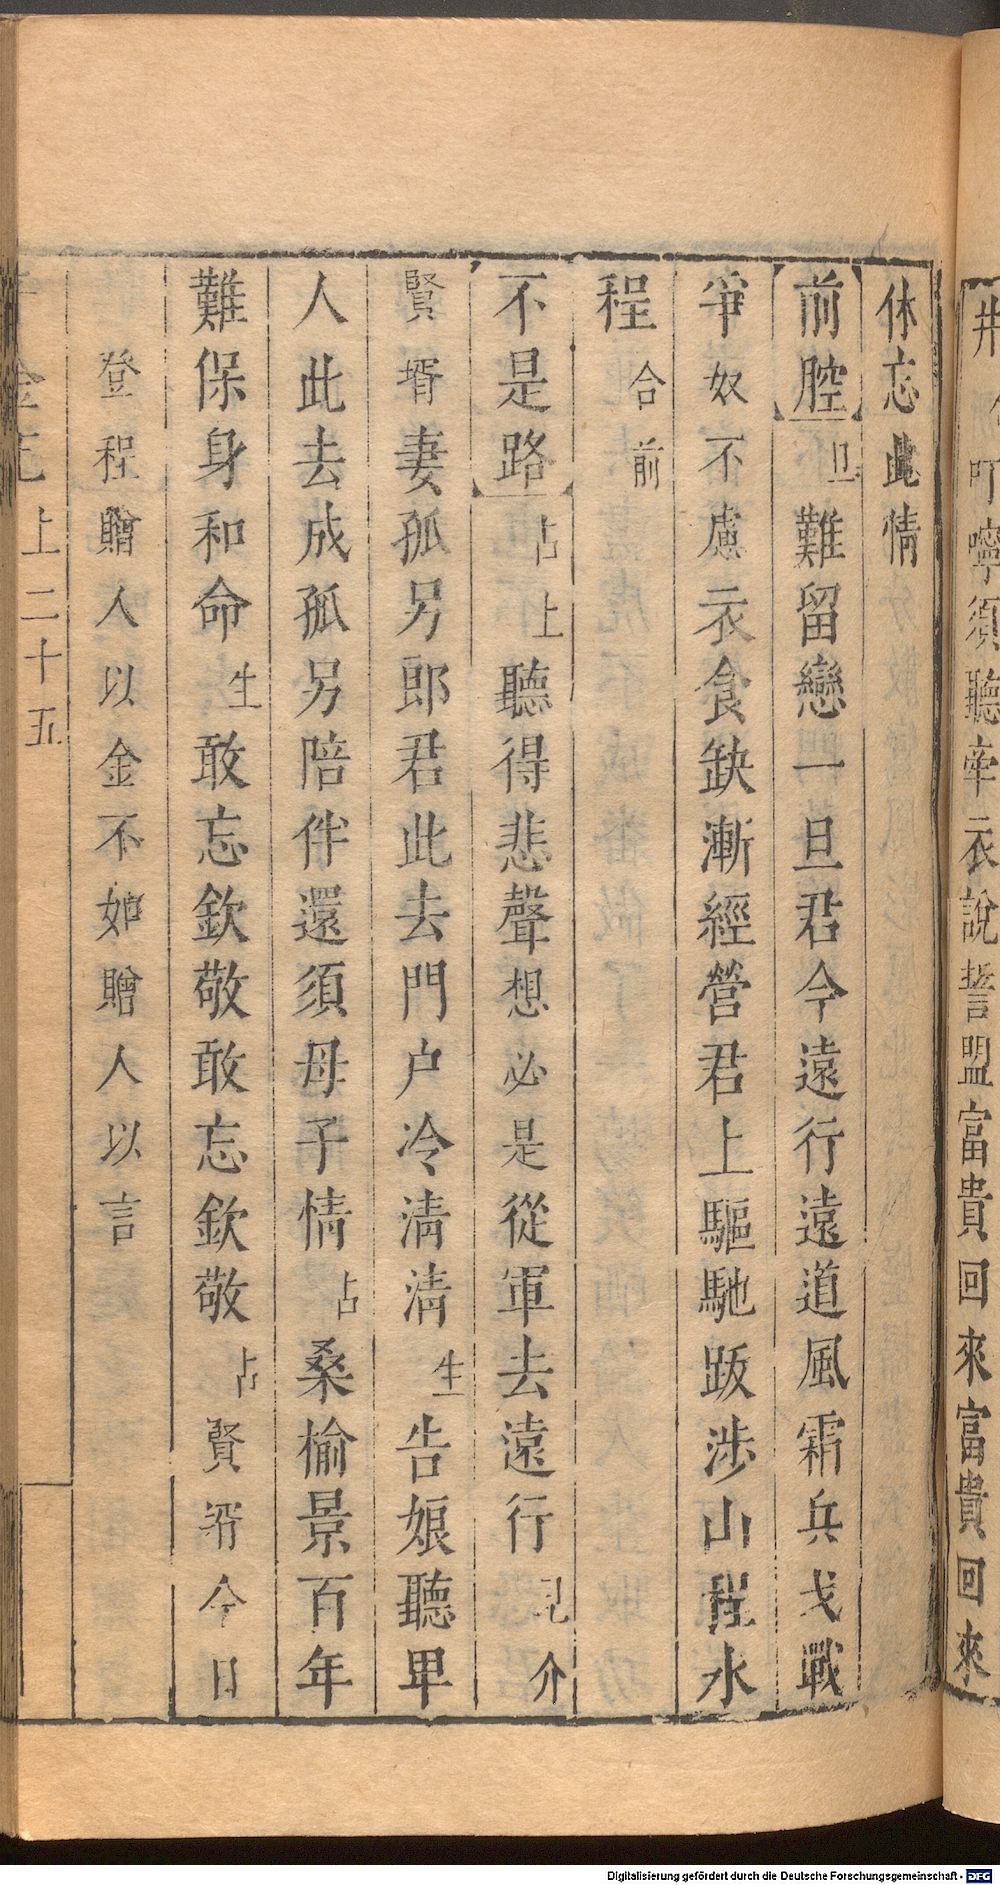 叮嚀須聽牽衣說誓盟富貴回來富貴回來
休忘此情
前腔旦難留戀一旦君今遠行遠道風霜兵戈戰
爭奴不慮衣食缺漸經營君上驅馳跋涉山程水
程合前
不是路占上聽得悲聲想必是從軍去遠行見介
賢壻妻孤另郎君此去門户冷清清生告娘聽畢
人此去成孤另陪伴還須母子情占桑榆景百年
難保身和命生敢忘欽敬敢忘欽敬占賢壻今日
登程贈人以金不如贈人以言
上二十五
Digitalisierung gefördert durch die Deutsche Forschungsgemeinschaft - DFG